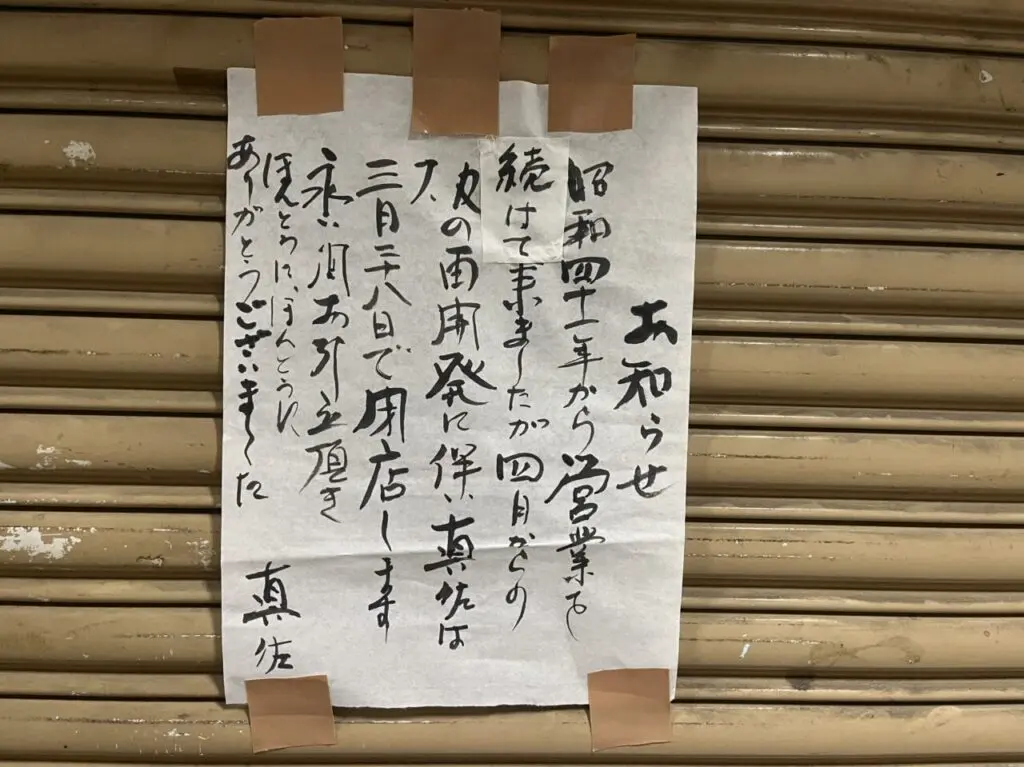 お知らせ
昭和四十一年から営業を
続けて来ましたが四月からの
の再開発に伴い真佐は
三月二十八日で閉店します
永い間お引立頂き
ほんとうに、ほんとうに、
ありがとうございました
真佐